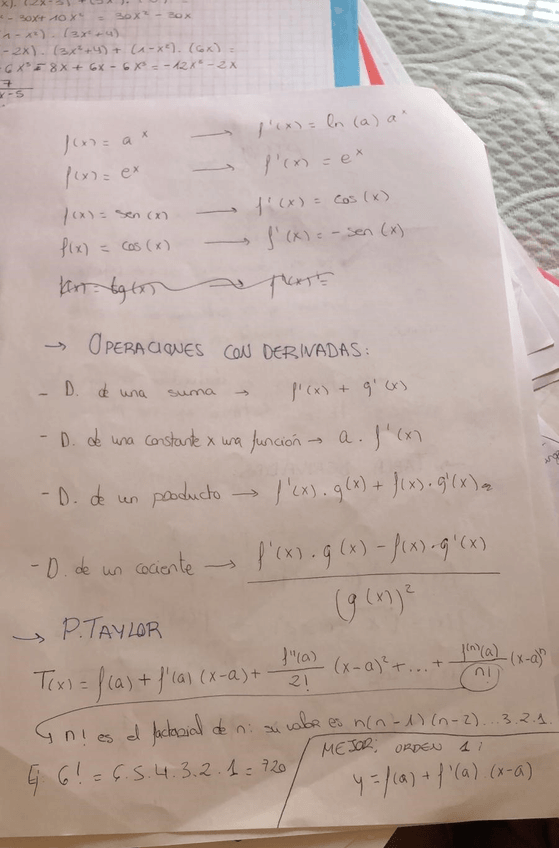 - 30x + 10x² = 30x² - 30x
(1 - x²) . (3x²+4)
-2x) . (3x²+4) + (1-x²) . (6x) =
6x³ - 8x + 6x - 6x³ = -12x² - 2x
7
x-5
f(x) = a^x → f'(x) = ln(a) a^x
f(x) = e^x → f'(x) = e^x
f(x) = sen(x) → f'(x) = cos(x)
f(x) = cos(x) → f'(x) = - sen(x)
f(x) = tg(x) → f'(x) =
→ OPERACIONES CON DERIVADAS:
- D. de una suma → f'(x) + g'(x)
- D. de una constante x una función → a . f'(x)
- D. de un producto → f'(x) . g(x) + f(x) . g'(x)
- D. de un cociente → f'(x) . g(x) - f(x) . g'(x)
(g(x))²
→ P. TAYLOR
T(x) = f(a) + f'(a) (x-a) + f''(a)/2! (x-a)² + ... + f^(n)(a)/n! (x-a)^n
↳ n! es el factorial de n: su valor es n(n-1)(n-2)...3.2.1.
Ej. 6! = 6.5.4.3.2.1 = 720
MEJOR: ORDEN 1:
y = f(a) + f'(a) . (x-a)